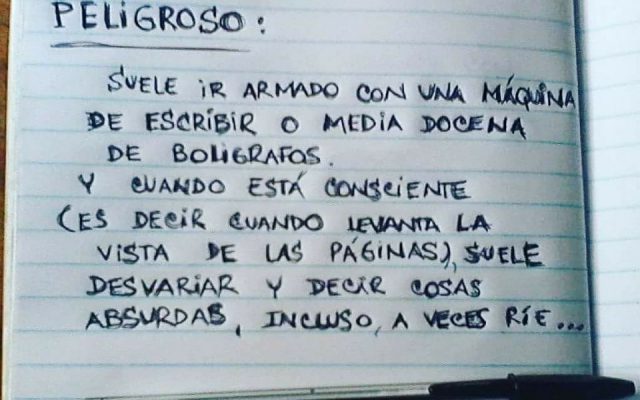 PELIGROSO:
SUELE IR ARMADO CON UNA MÁQUINA
DE ESCRIBIR O MEDIA DOCENA
DE BOLIGRAFOS.
Y CUANDO ESTÁ CONSCIENTE
(ES DECIR CUANDO LEVANTA LA
VISTA DE LAS PÁGINAS), SUELE
DESVARIAR Y DECIR COSAS
ABSURDAS, INCLUSO, A VECES RÍE...